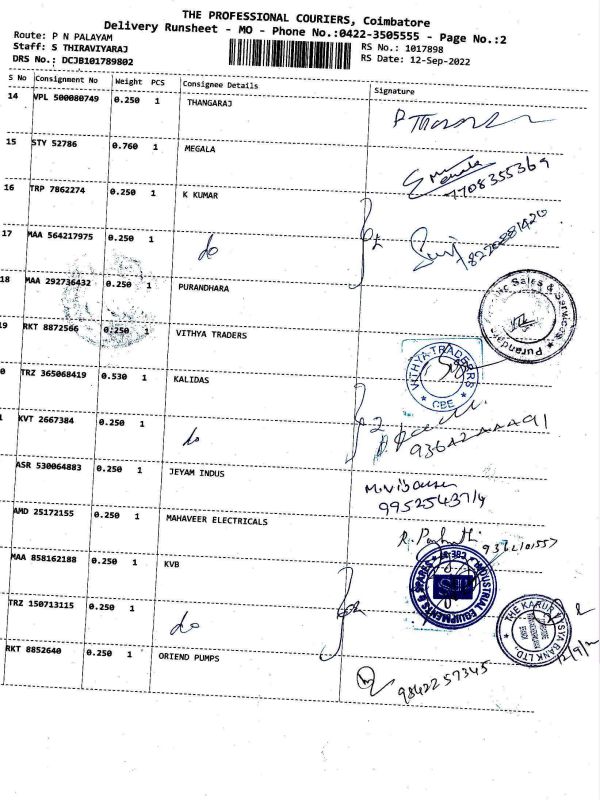 THE PROFESSIONAL COURIERS, Coimbatore
Delivery Runsheet - MO - Phone No.:0422-3505555 - Page No.:2
Route: P N PALAYAM
Staff: S THIRAVIYARAJ
RS No.: 1017898
DRS No.: DCJB101789802
RS Date: 12-Sep-2022
S No Consignment No Weight PCS Consignee Details Signature
14 VPL 500080749 0.250 1 THANGARAJ
15 STY 52786 0.760 1 MEGALA
7708355369
16 TRP 7862274 0.250 1 K KUMAR
17 MAA 564217975 0.250 1 do
18 MAA 292736432 0.250 1 PURANDHARA
Sales & Services
9 RKT 8872566 0.250 1 VITHYA TRADERS
VITHYA TRADERS
CBE
0 TRZ 365068419 0.530 1 KALIDAS
KVT 2667384 0.250 1 do
ASR 530064883 0.250 1 JEYAM INDUS
AMD 25172155 0.250 1 MAHAVEER ELECTRICALS
INDUSTRIAL EQUIPMENTS & SPARES
MAA 858162188 0.250 1 KVB
THE KARUR VYSYA BANK LTD.
TRZ 150713115 0.250 1 do
RKT 8852640 0.250 1 ORIEND PUMPS
9842257345